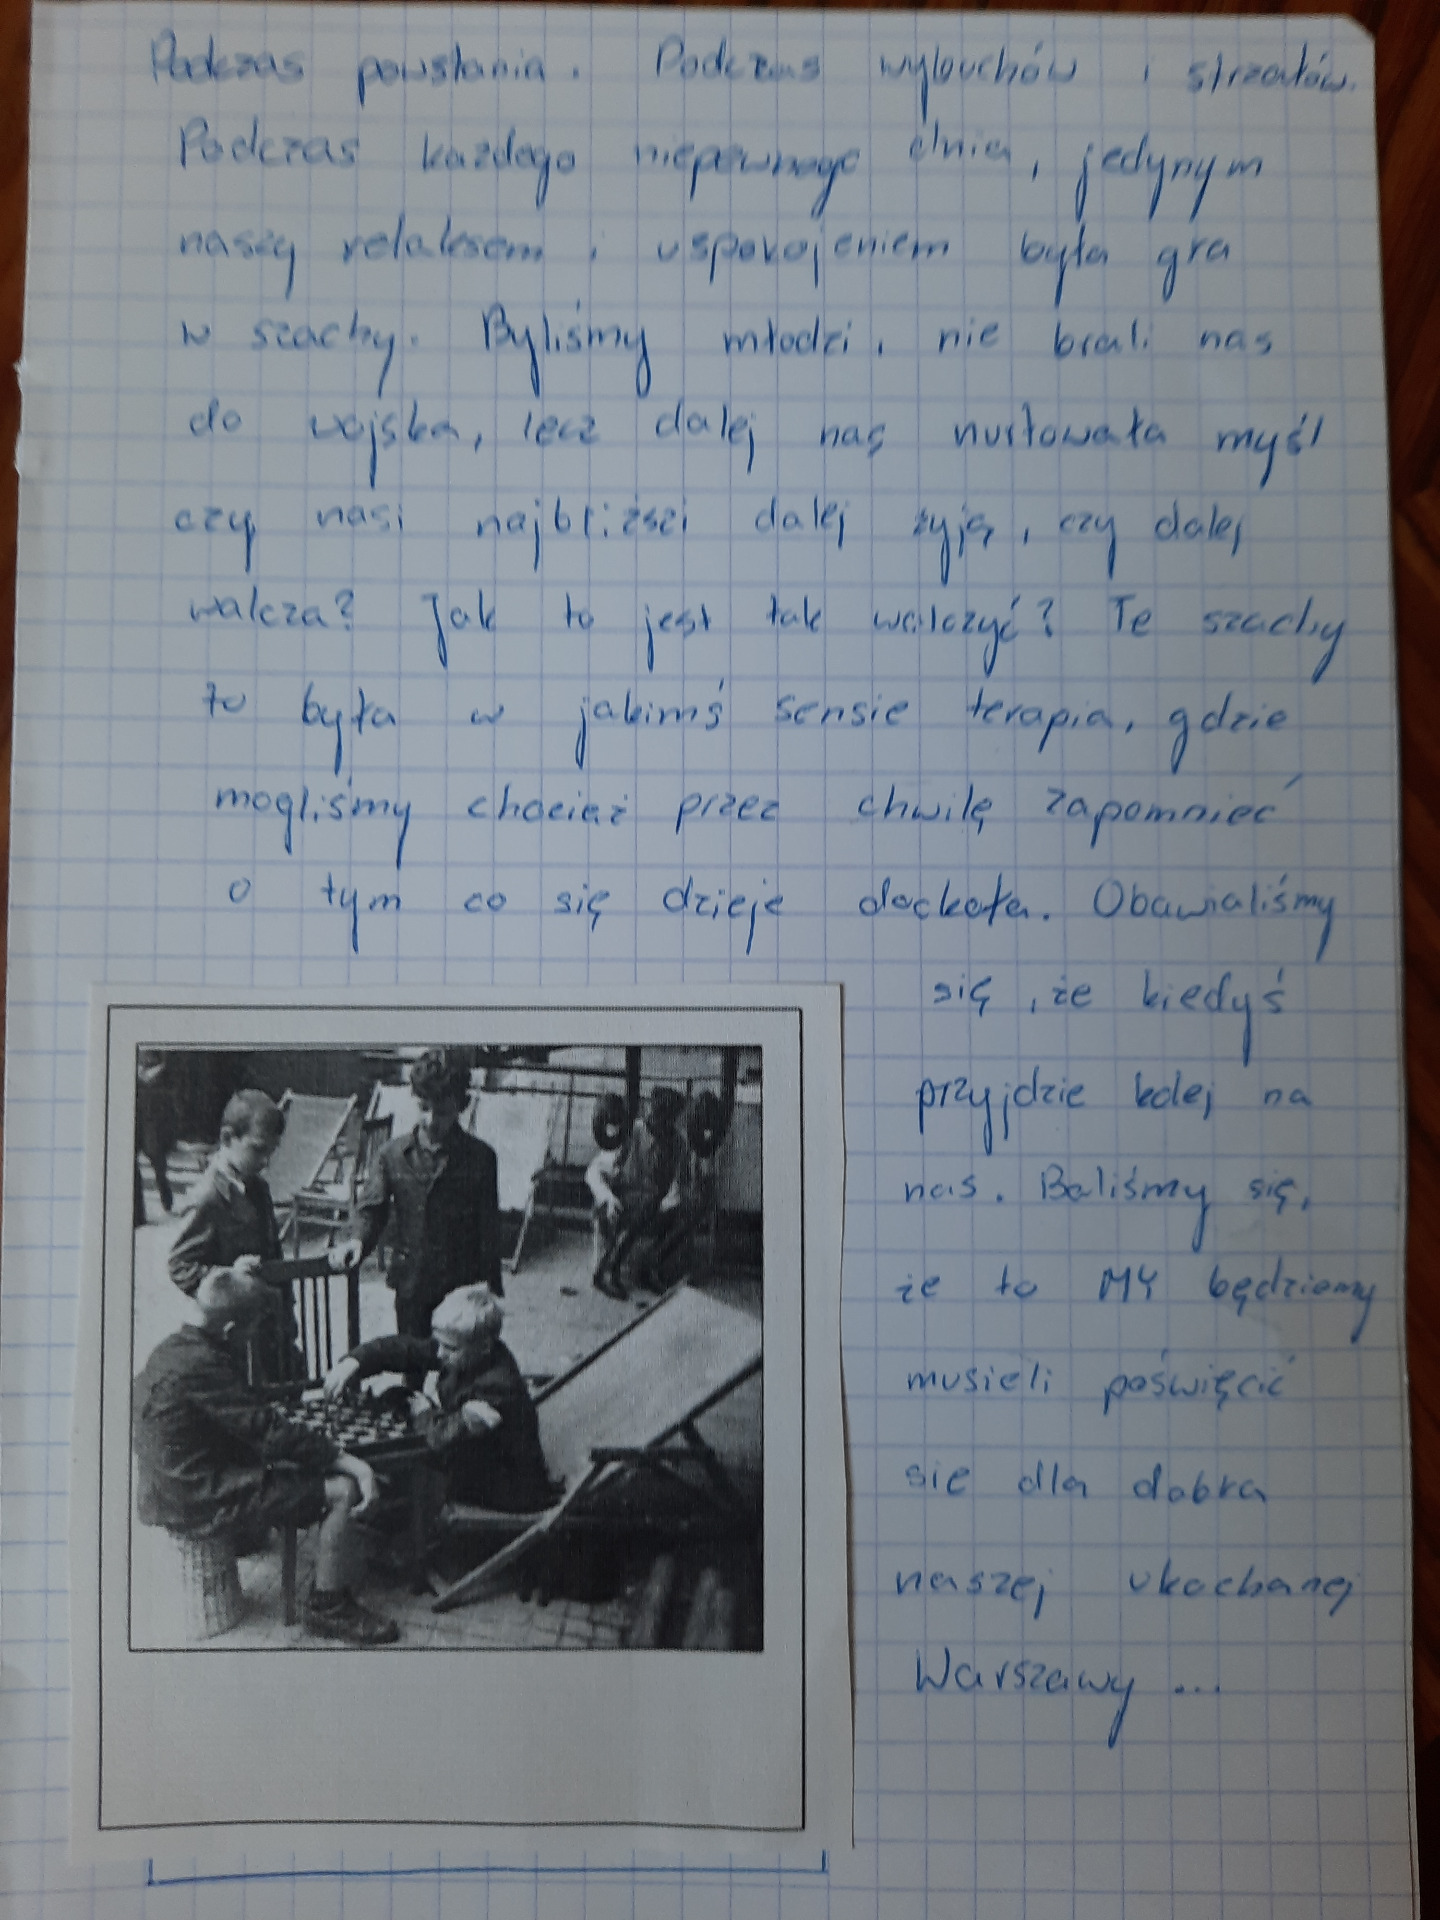 Podczas powstania. Podczas wybuchów i strzałów.
Podczas każdego niepewnego dnia, jedynym
naszy relaksem i uspokojeniem była gra
w szachy. Byliśmy młodzi, nie brali nas
do wojska, lecz dalej nas nurtowała myśl
czy nasi najbliżsi dalej żyją, czy dalej
walcza? Jak to jest tak walczyć? Te szachy
to była w jakimś sensie terapia, gdzie
mogliśmy chociaż przez chwilę zapomnieć
o tym co się dzieje dookoła. Obawialiśmy
się, że kiedyś
przyjdzie kolej na
nas. Baliśmy się,
że to MY będziemy
musieli poświęcić
sie dla dobra
naszej ukochanej
Warszawy ...